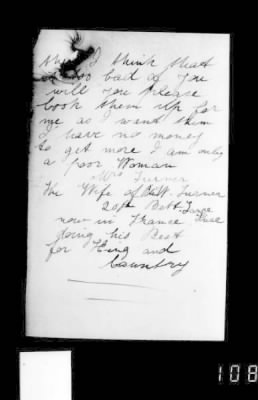 them I think that
is too bad of you
will you please
look them up for
me as I want them
I have no money
to get more I am only
a poor Woman
Mrs Turner
The Wife of W Turner
20th Batt
now in France
Doing his Best
for King and
Country
108